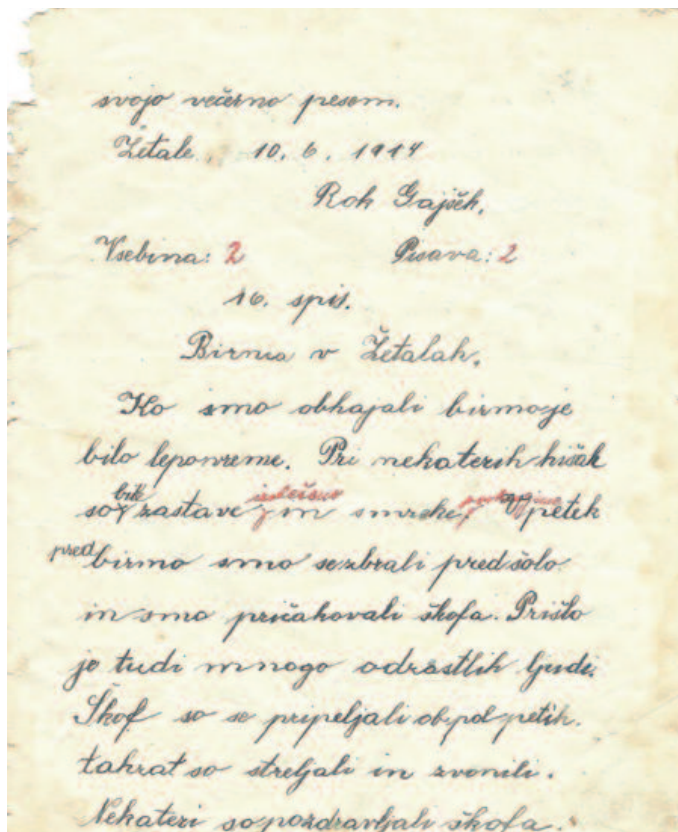 svojo večerno pesem.
Žetale, 10. 6. 1914
Rok Gajšek.
Vsebina: 2 Pisava: 2
16. spis.
Birma v Žetalah.
Ko smo obhajali birmo je
bilo lepo vreme. Pri nekaterih hišah
so bile zastave izobešene in smreke. V petek
pred birmo smo se zbrali pred šolo
in smo pričakovali škofa. Prišlo
je tudi mnogo odrastlih ljudi.
Škof so se pripeljali ob pol petih.
takrat so streljali in zvonili.
Nekateri so pozdravljali škofa.